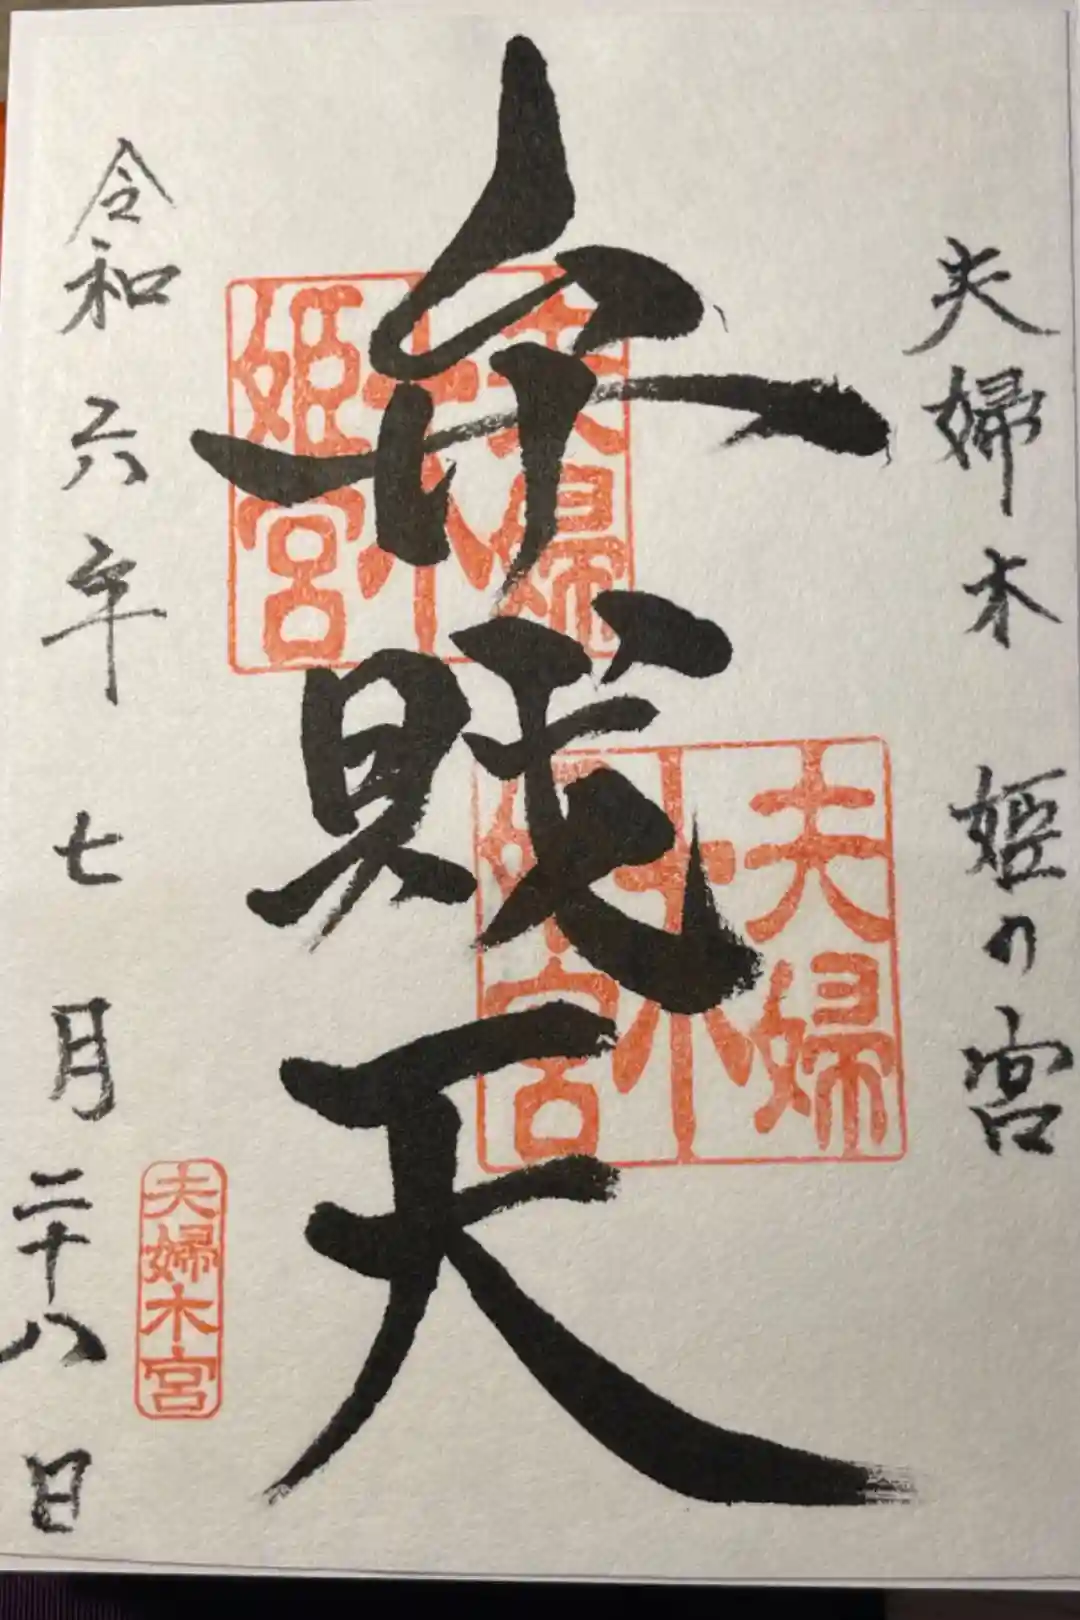 夫婦木 姫の宮
弁財天
夫婦
木
姫宮
夫婦
木
姫宮
令和六年七月二十八日
夫婦木宮